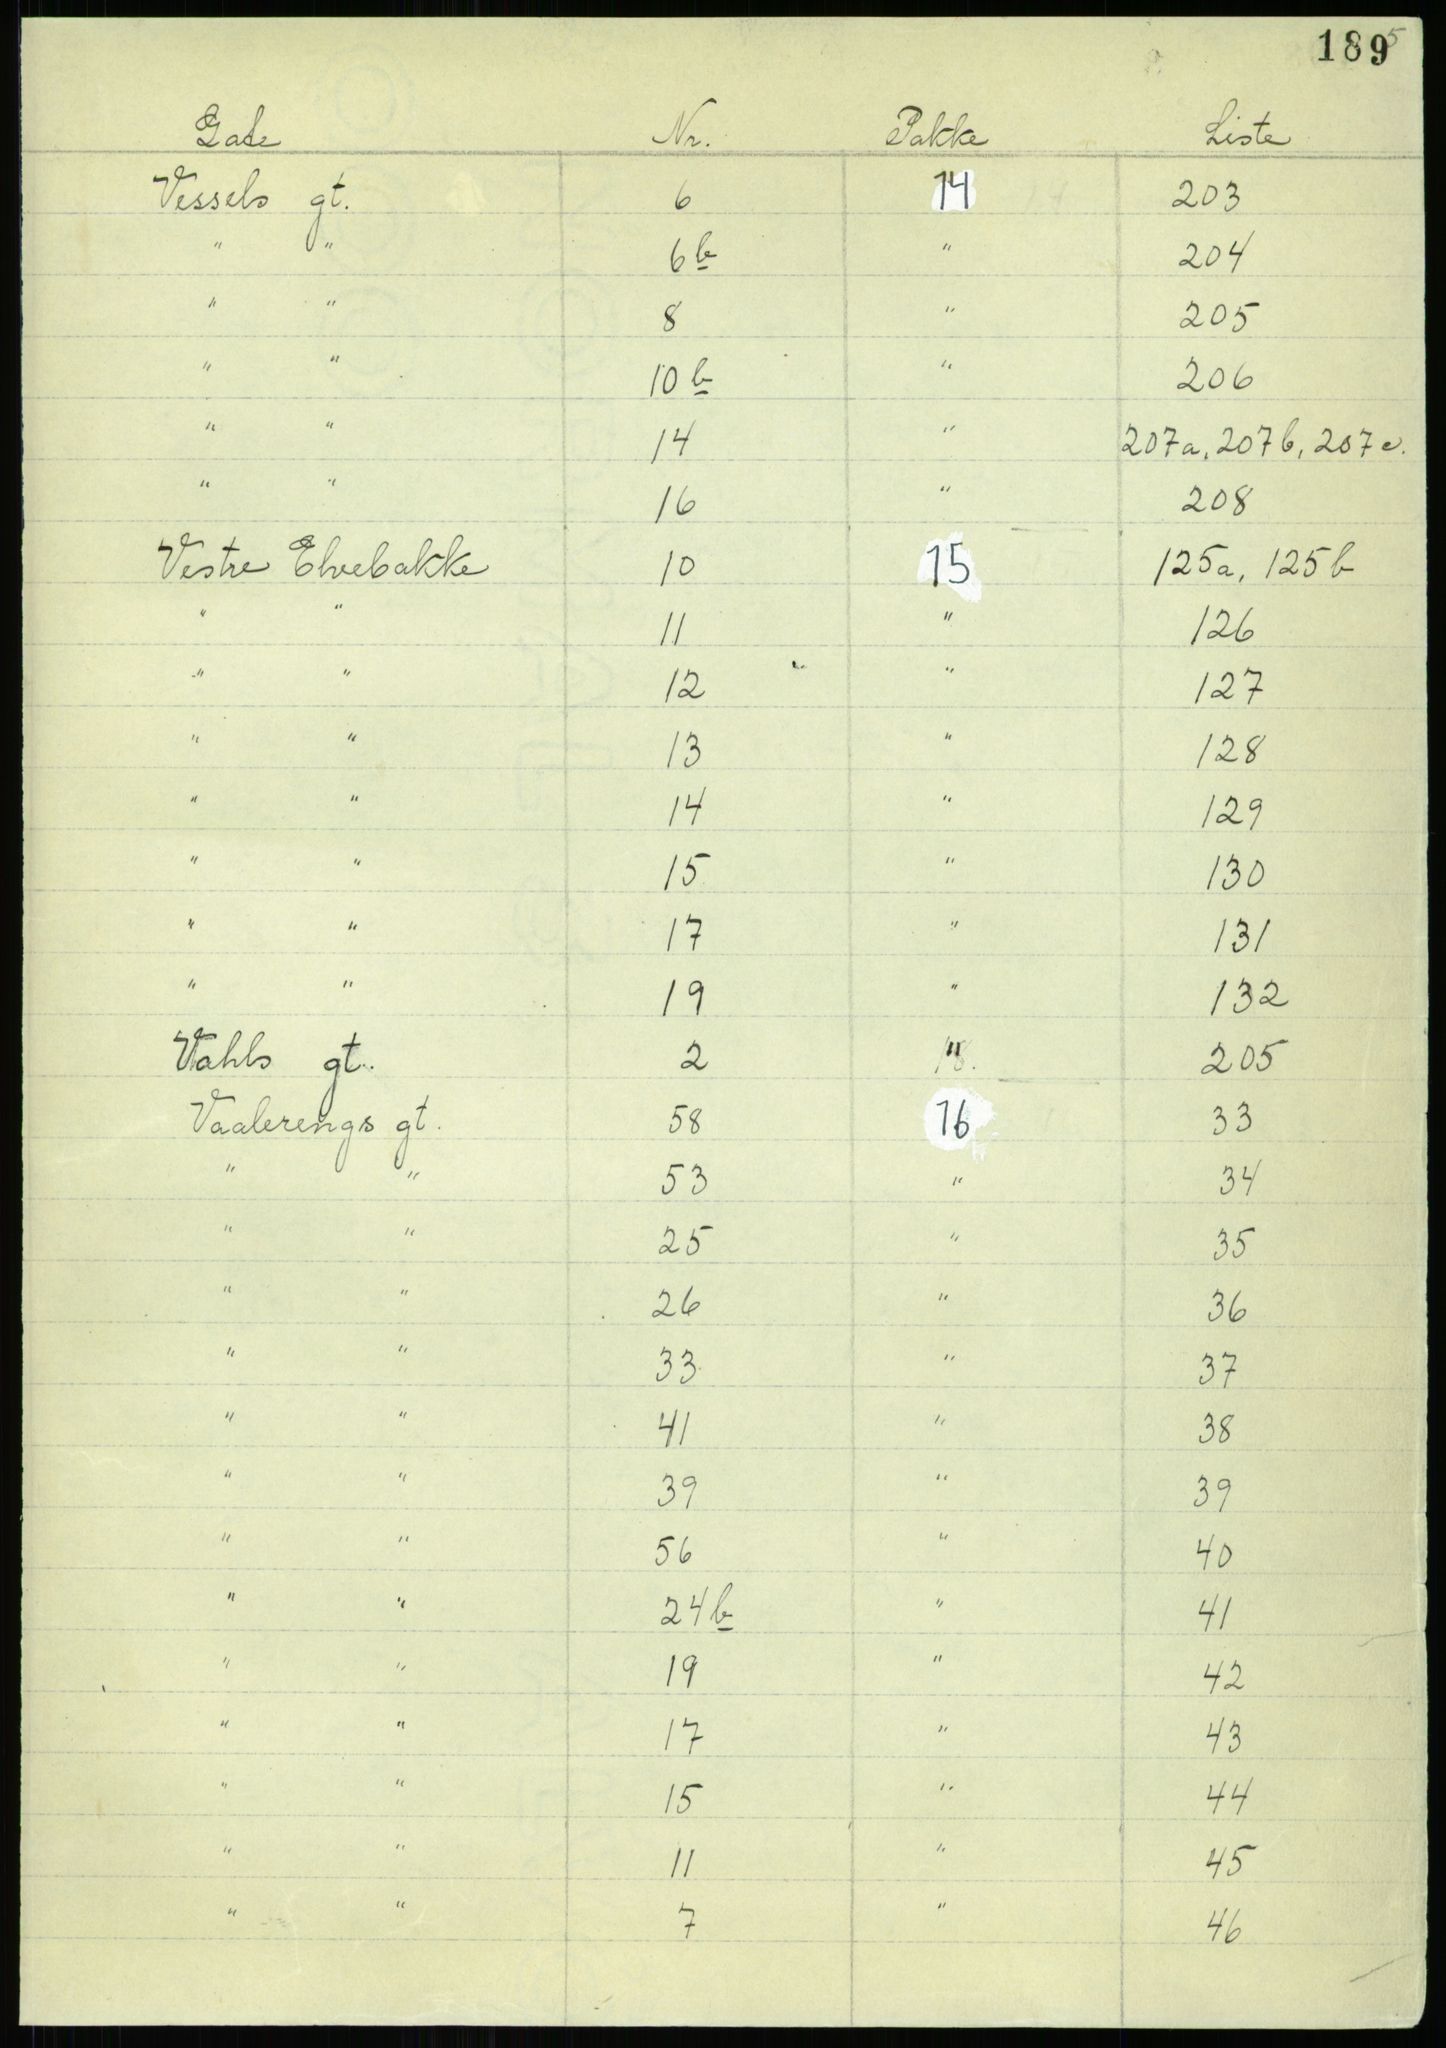 189
Gate Nr. Pakke Liste
Vessels gt. 6 14 203
" " 6b " 204
" " 8 " 205
" " 10b " 206
" " 14 " 207a, 207b, 207c.
" " 16 " 208
Vestre Elvebakke 10 15 125a, 125b
" " 11 " 126
" " 12 " 127
" " 13 " 128
" " 14 " 129
" " 15 " 130
" " 17 " 131
" " 19 " 132
Vahls gt. 2 " 205
Vaalerengs gt. 58 16 33
" " 53 " 34
" " 25 " 35
" " 26 " 36
" " 33 " 37
" " 41 " 38
" " 39 " 39
" " 56 " 40
" " 24b " 41
" " 19 " 42
" " 17 " 43
" " 15 " 44
" " 11 " 45
" " 7 " 46